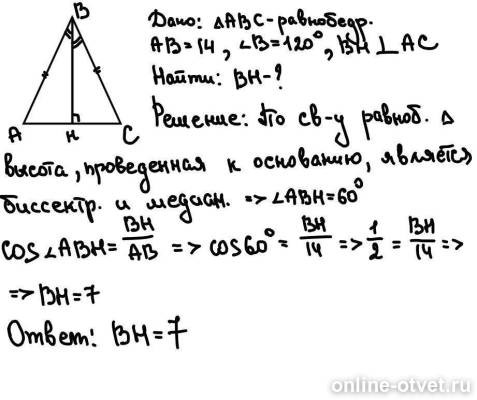 B
A
H
C
Дано: △ABC-равнобедр.
AB=14, ∠B=120°, BH⊥AC
Найти: BH-?
Решение: По св-у равноб. △
высота, проведенная к основанию, является
биссектр. и медиан. => ∠ABH=60°
cos∠ABH= BH/AB => cos60°= BH/14 => 1/2 = BH/14 =>
=> BH=7
Ответ: BH=7
online-otvet.ru